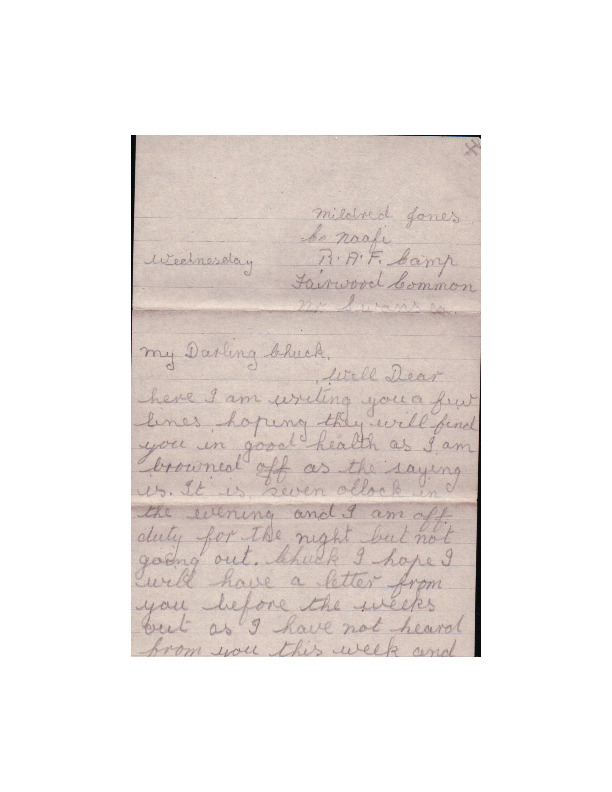 4
Mildred Jones
c/o naafi
Wednesday R.A.F. Camp
Fairwood Common
Nr Swansea.
My Darling Chuck,
Well Dear
here I am writing you a few
lines hoping they will find
you in good health as I am
browned off as the saying
is. It is seven oclock in
the evening and I am off
duty for the night but not
going out. Chuck I hope I
will have a letter from
you before the weeks
out as I have not heard
from you this week and